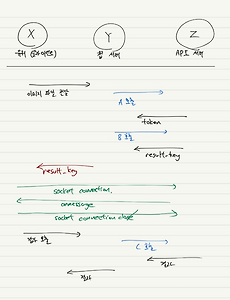 X Y Z
유저 (클라이언트) 웹 서버 API 서버
이미지 파일 전달
A 호출
token
B 호출
result_key
result_key
socket connection.
onmessage
socket connection close
결과 호출
C 호출
결과
결과